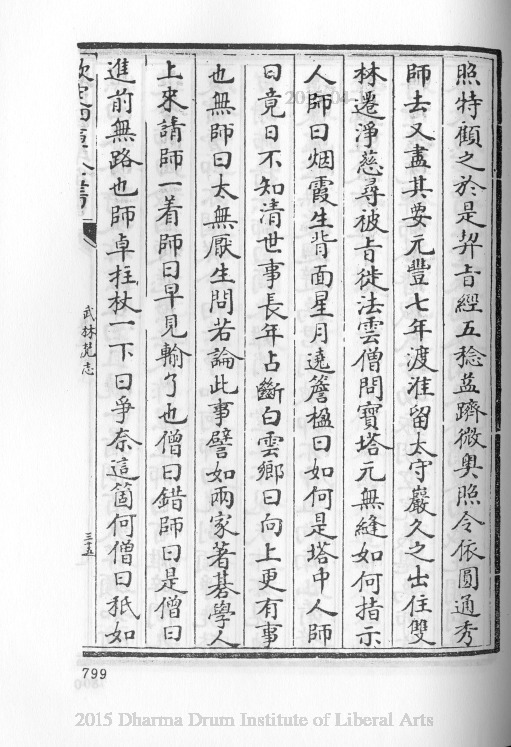 照特頋之於是契㫖經五稔益躋微奥照令依圓通秀
師去又盡其要元豐七年渡淮留太守巖久之出住雙
林遷淨慈尋被㫖徙法雲僧問寳塔元無縫如何指示
人師曰烟霞生背面星月遶簷楹曰如何是塔中人師
曰竟日不知清世事長年占斷白雲鄉曰向上更有事
也無師曰太無厭生問若論此事譬如兩家著碁學人
上來請師一着師曰早見輸了也僧曰錯師曰是僧曰
進前無路也師卓拄杖一下曰爭奈這箇何僧曰秪如
欽定四庫全書
武林梵志
三十五
799
2015 Dharma Drum Institute of Liberal Arts